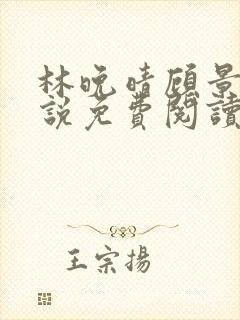 林晚晴顾景
說免費閱讀
王宗揚